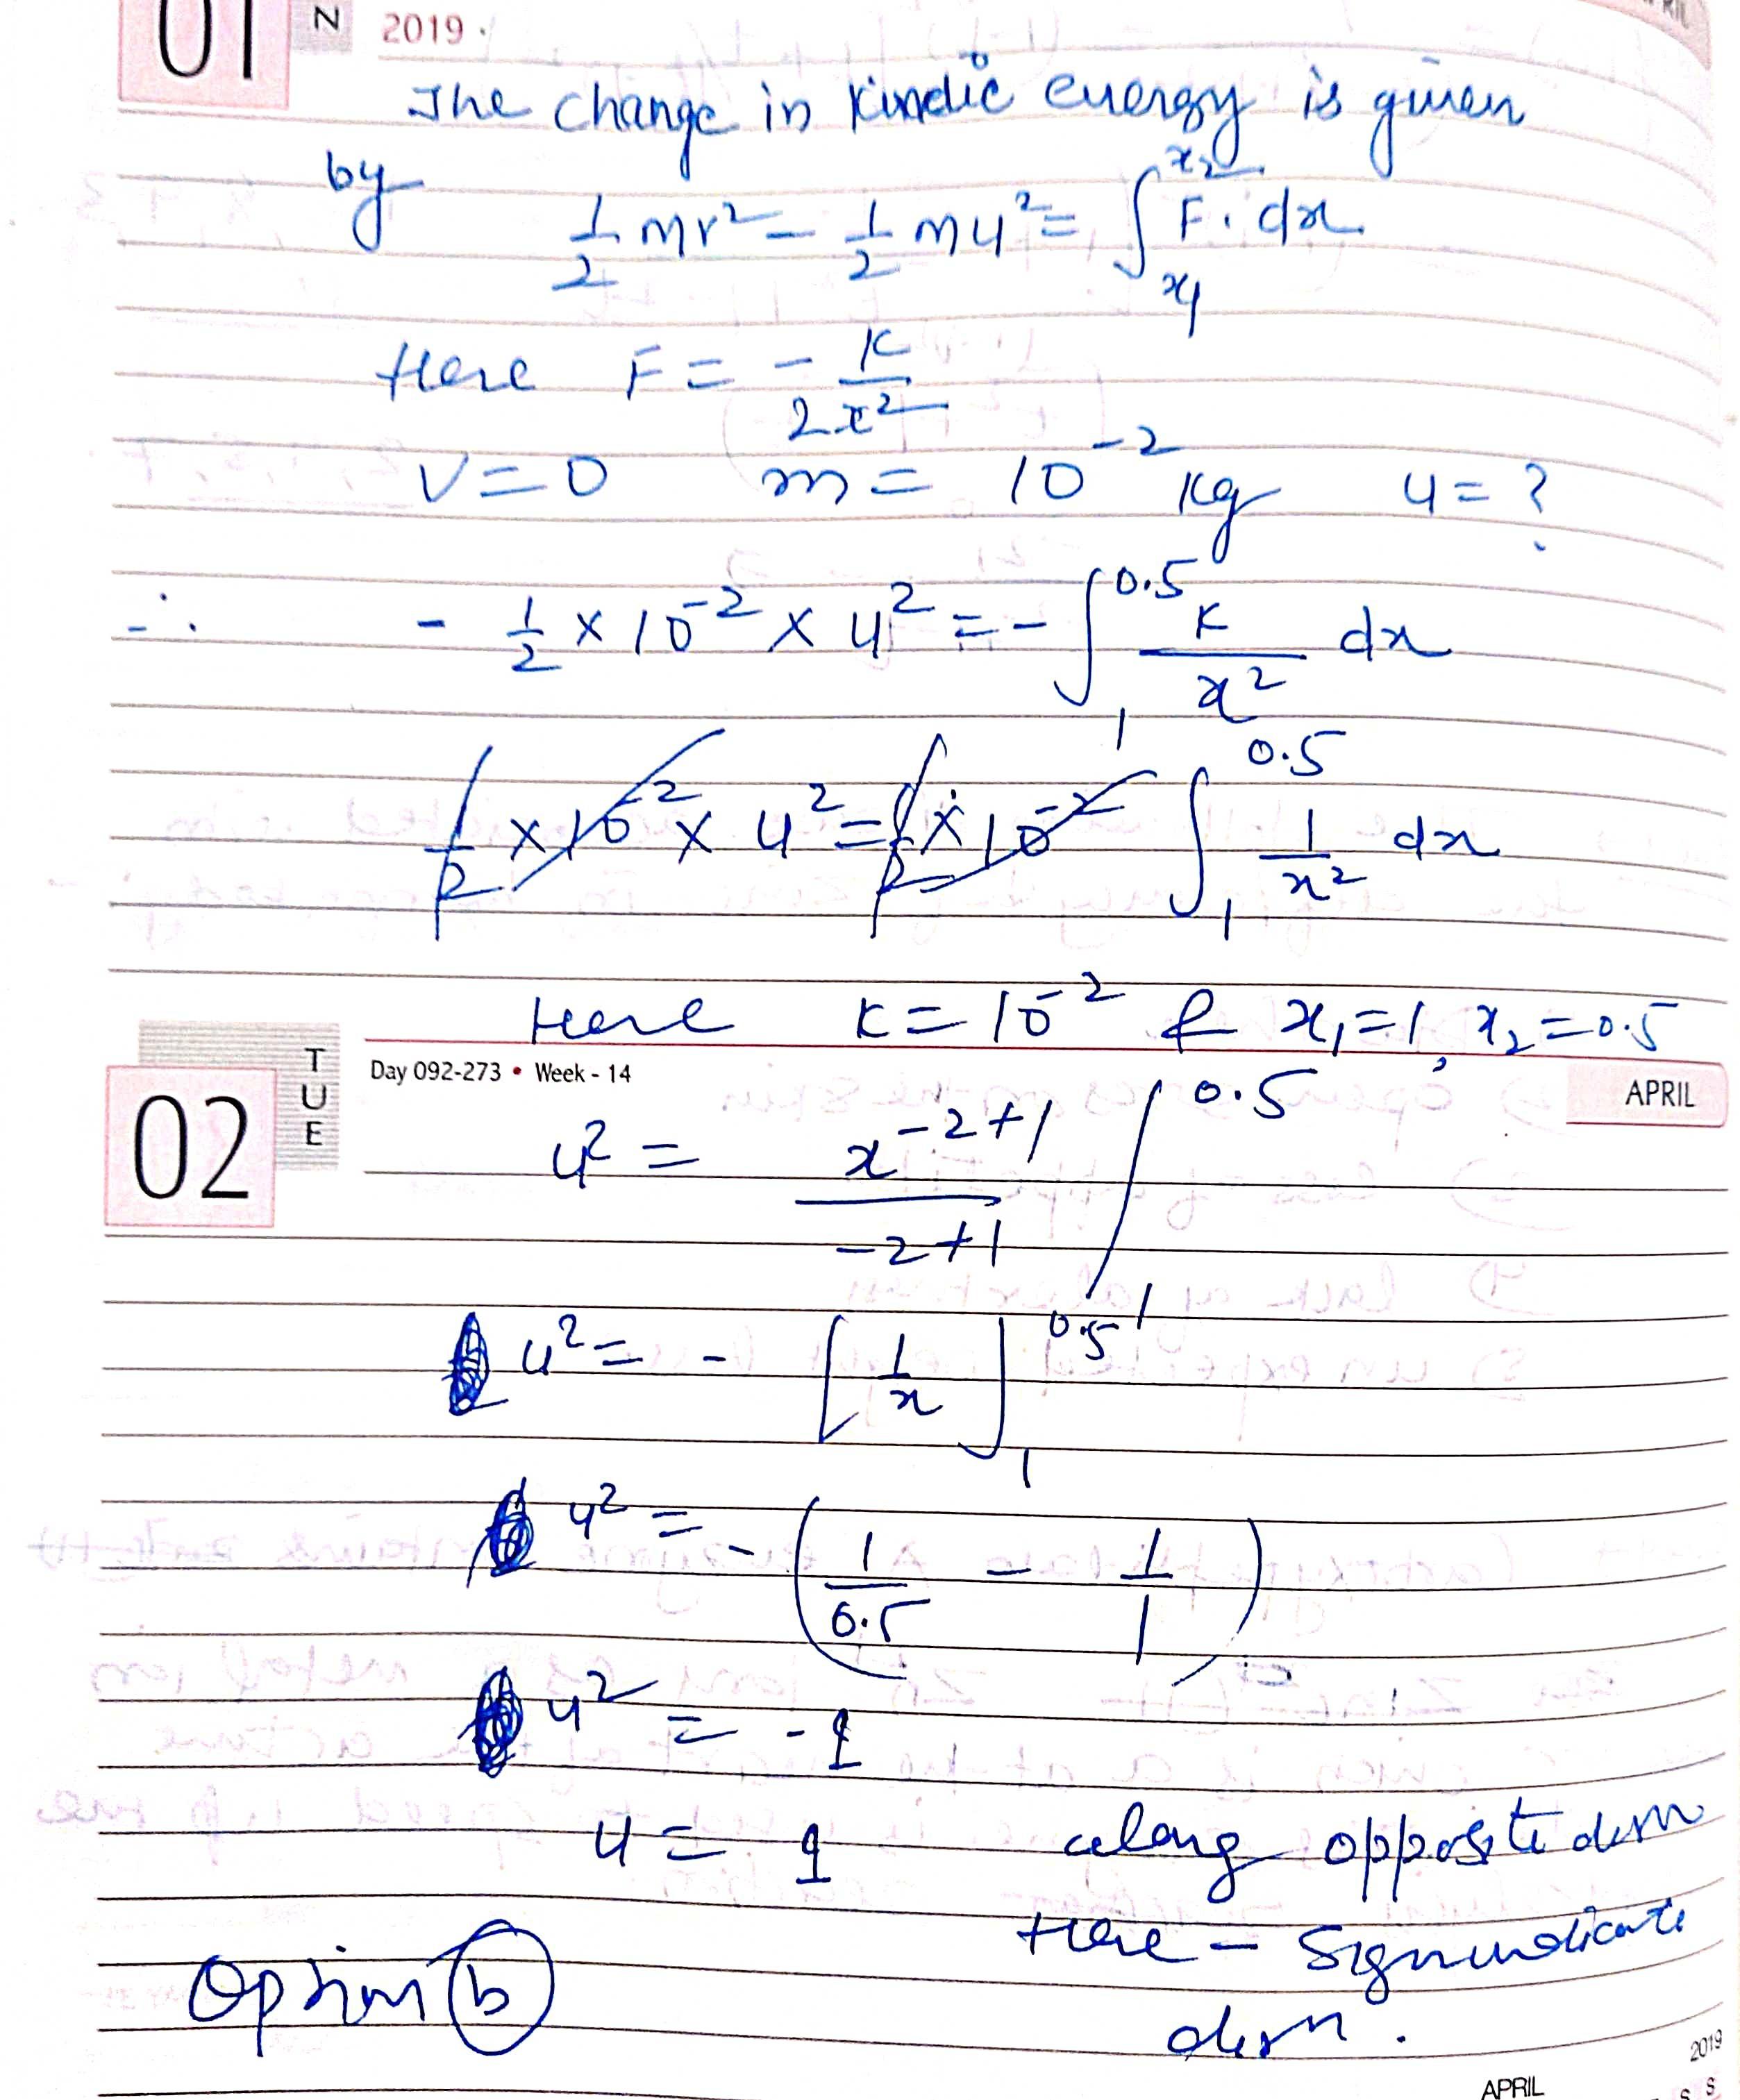 01 N 2019
The change in kinetic energy is given
by
1/2 mv² - 1/2 mu² = ∫_{x₁}^{x₂} F. dx
Here F = - K/2x²
V = 0 m = 10^-2 kg u = ?
∴ - 1/2 × 10^-2 × u² = - ∫_1^0.5 K/x² dx
1/2 × 10^-2 × u² = 1/2 × 10^-2 ∫_1^0.5 1/x² dx
Here K = 10^-2 & x₁ = 1, x₂ = 0.5
02 TUE Day 092-273 • Week - 14 APRIL
u² = x^{-2+1}/-2+1 |_1^0.5
u² = - [1/x]_1^0.5
u² = - (1/0.5 - 1/1)
u² = - 1
u = 1 along opposite dirn
Here - Sign indicate
dirn.
Option b
2019
APRIL
S S